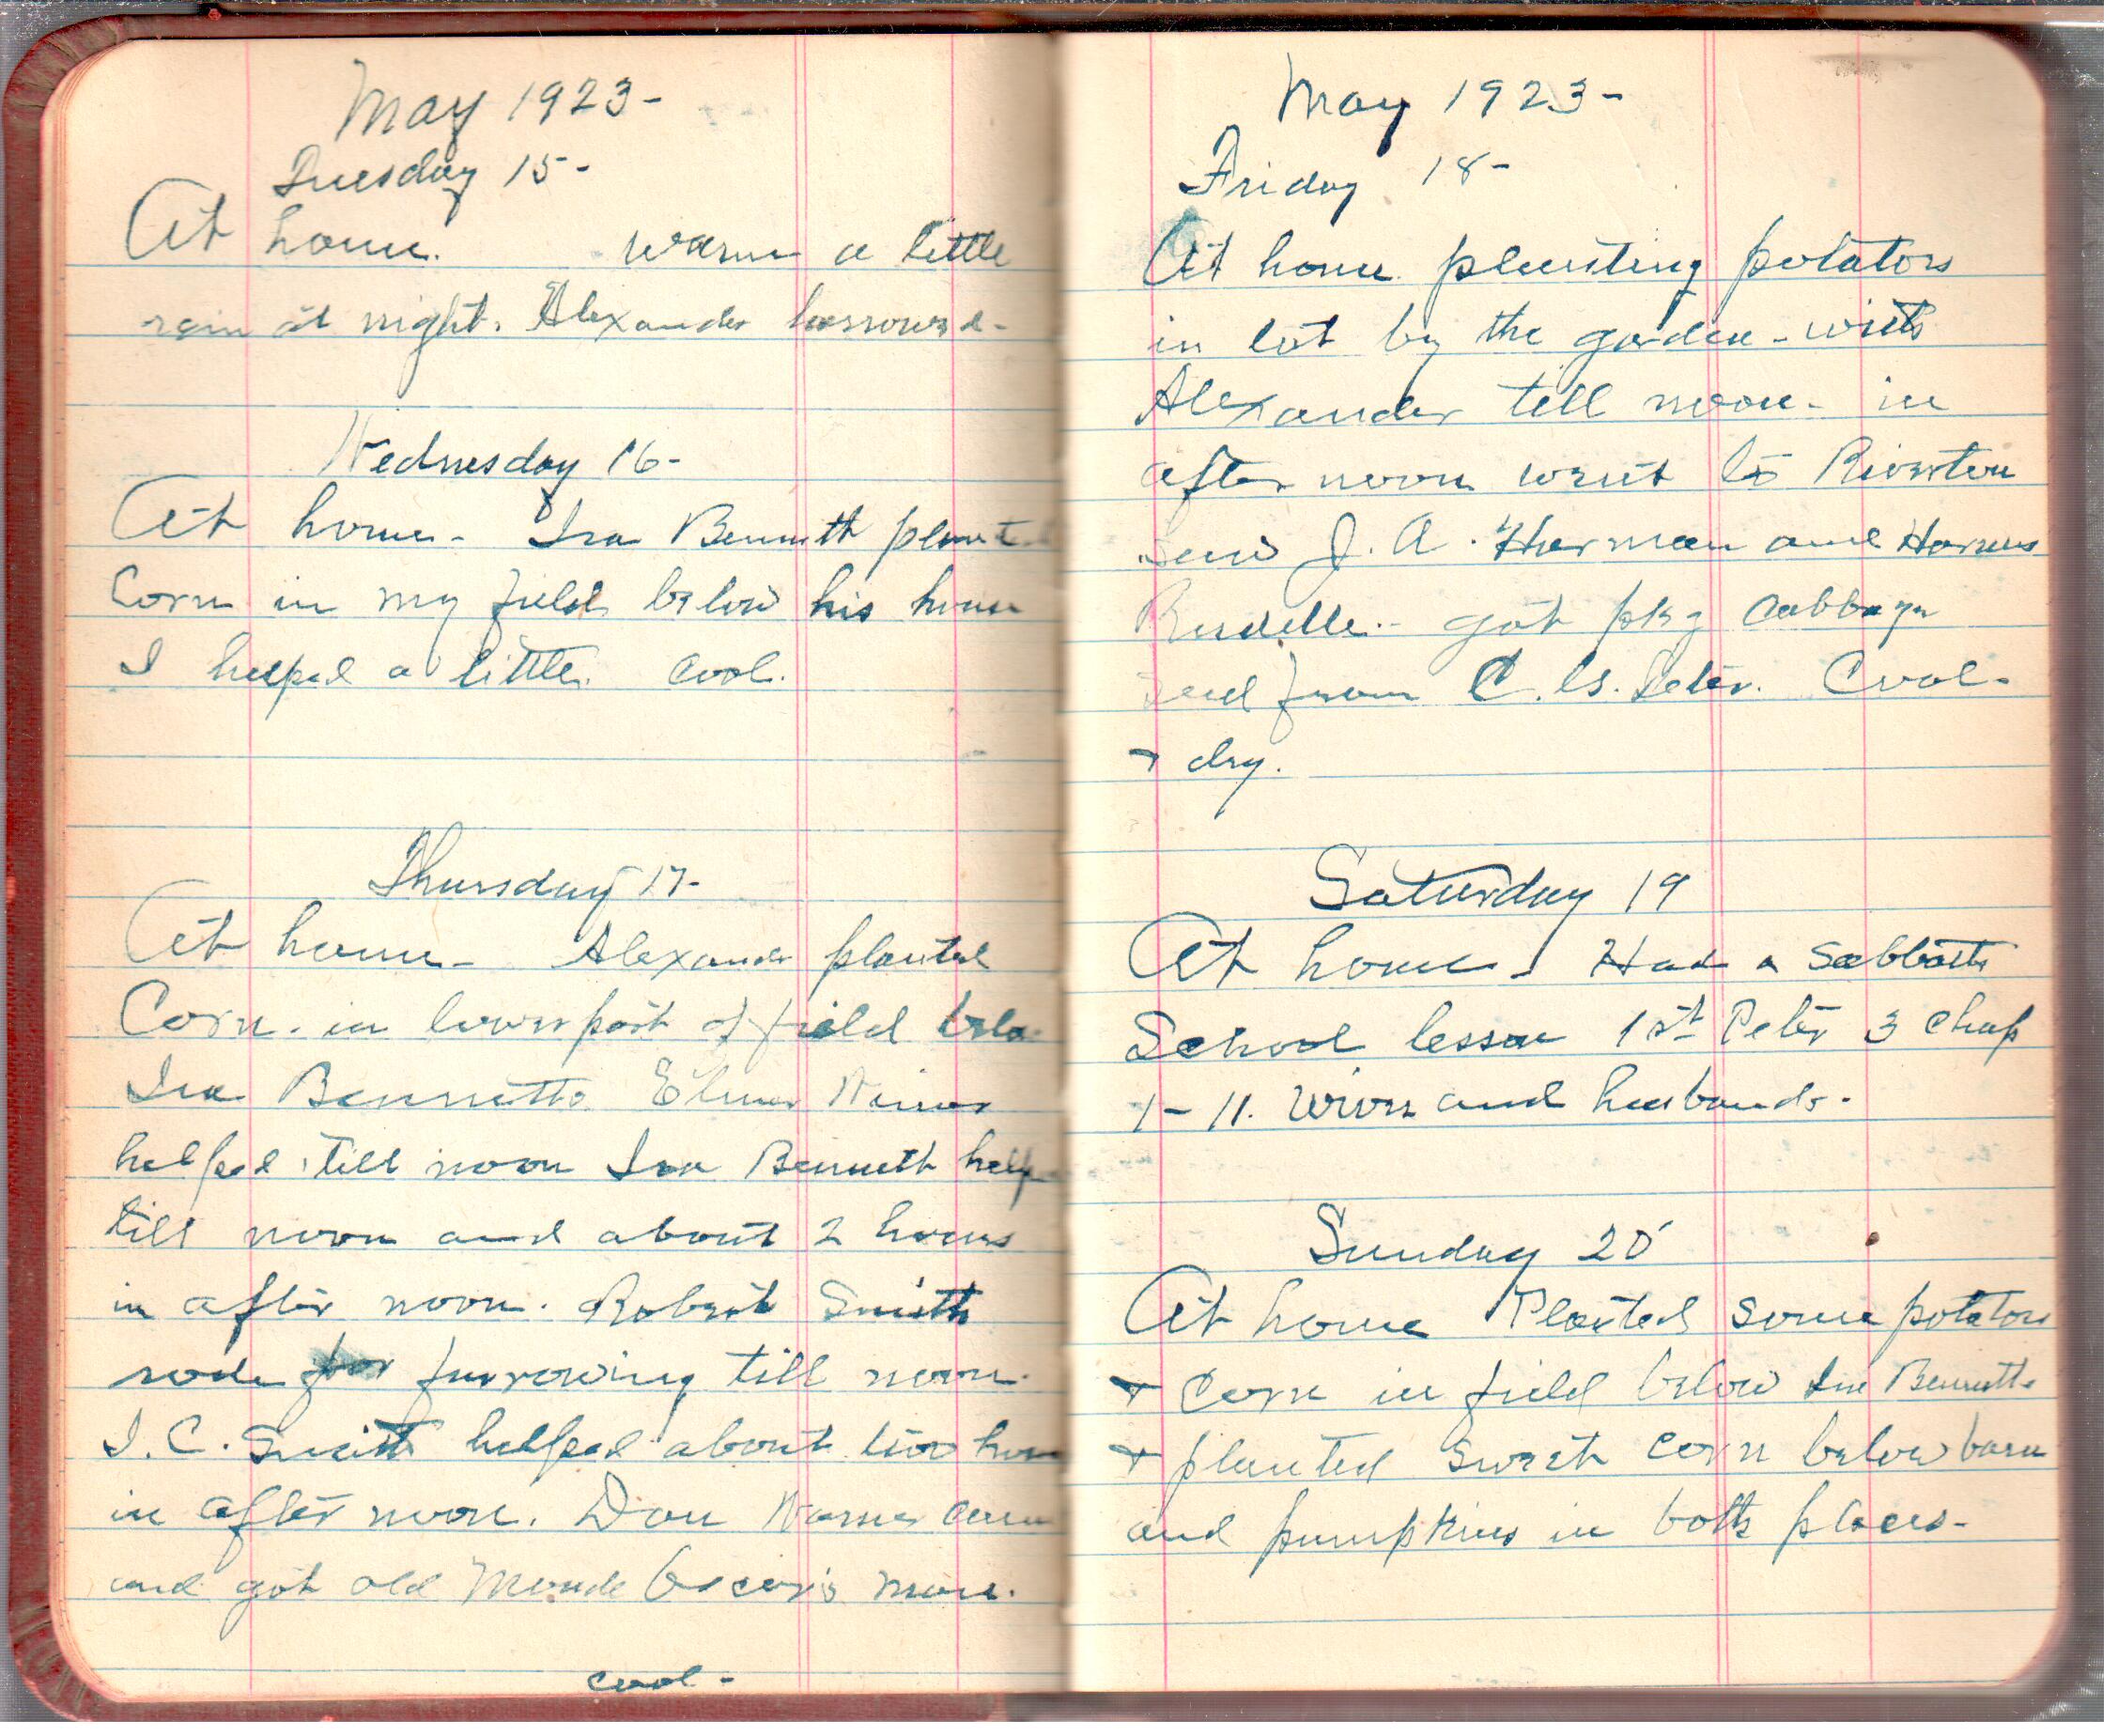 May 1923-
Tuesday 15-
At home. Warm a little
rain at night. Alexander harrowed-
Wednesday 16-
At home- Ira Bennett plant
Corn in my field below his house
I helped a little. Cool.
Thursday 17-
At home- Alexander planted
Corn. in lower part of field belo
Ira Bennetts. Elmer
helped till noon Ira Bennett help
till noon and about 2 hours
in after noon. Robert Smith
rode for furrowing till noon.
I. C. Smith helped about two hou
in after noon. Dan Warner came
and got old Maude Oscar's mare.
cool-
May 1923-
Friday 18-
At home planting potators
in lot by the garden- with
Alexander till noon- in
after noon went to Riverton
seen J. A. Harman and
got pkg Cabbage
seed from C. Peter. Cool-
+ dry.
Saturday 19
At home. Had a Sabbath
School lesson 1st Peter 3 Chap
1-11. Wives and husbands-
Sunday 20
At home Planted some potators
+ Corn in field below Ira Bennetts
+ planted sweet corn below barn
and pumpkins in both places-